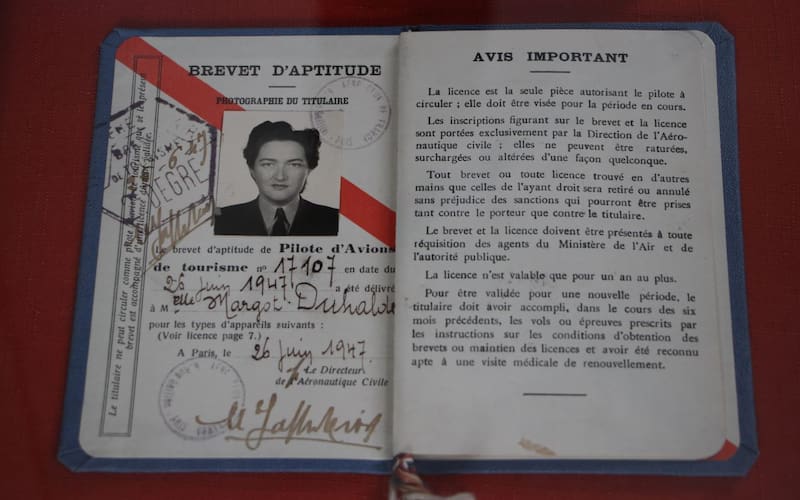 BREVET D'APTITUDE
PHOTOGRAPHIE DU TITULAIRE
Le brevet d'aptitude de Pilote d'Avions
de tourisme nº 17107 en date du
26 juin 1947 a été délivré
à Mlle Margot Duhalde
pour les types d'appareils suivants :
(Voir licence page 7.)
A Paris, le 26 juin 1947.
Le Directeur
de l'Aéronautique Civile
Le titulaire ne peut circuler comme pilote
brevet est accompagné d'une licence
AVIS IMPORTANT
La licence est la seule pièce autorisant le pilote à
circuler ; elle doit être visée pour la période en cours.
Les inscriptions figurant sur le brevet et la licence
sont portées exclusivement par la Direction de l'Aéro-
nautique civile ; elles ne peuvent être raturées,
surchargées ou altérées d'une façon quelconque.
Tout brevet ou toute licence trouvé en d'autres
mains que celles de l'ayant droit sera retiré ou annulé
sans préjudice des sanctions qui pourront être prises
tant contre le porteur que contre le titulaire.
Le brevet et la licence doivent être présentés à toute
réquisition des agents du Ministère de l'Air et de
l'autorité publique.
La licence n'est valable que pour un an au plus.
Pour être validée pour une nouvelle période, le
titulaire doit avoir accompli, dans le cours des six
mois précédents, les vols ou épreuves prescrits par
les instructions sur les conditions d'obtention des
brevets ou maintien des licences et avoir été reconnu
apte à une visite médicale de renouvellement.